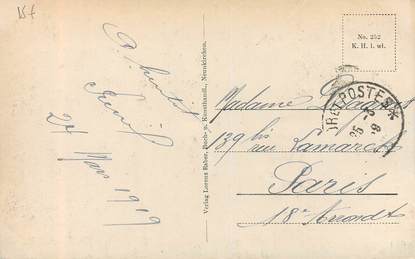 15f
No. 252
K. H. l. wl.
Verlag Lorenz Baber, Buch- u. Kunsthandl., Neunkirchen.
24 Mars 1919
POSTES *
Madame
139 bis rue Lamarck
Paris
18e Arrondt